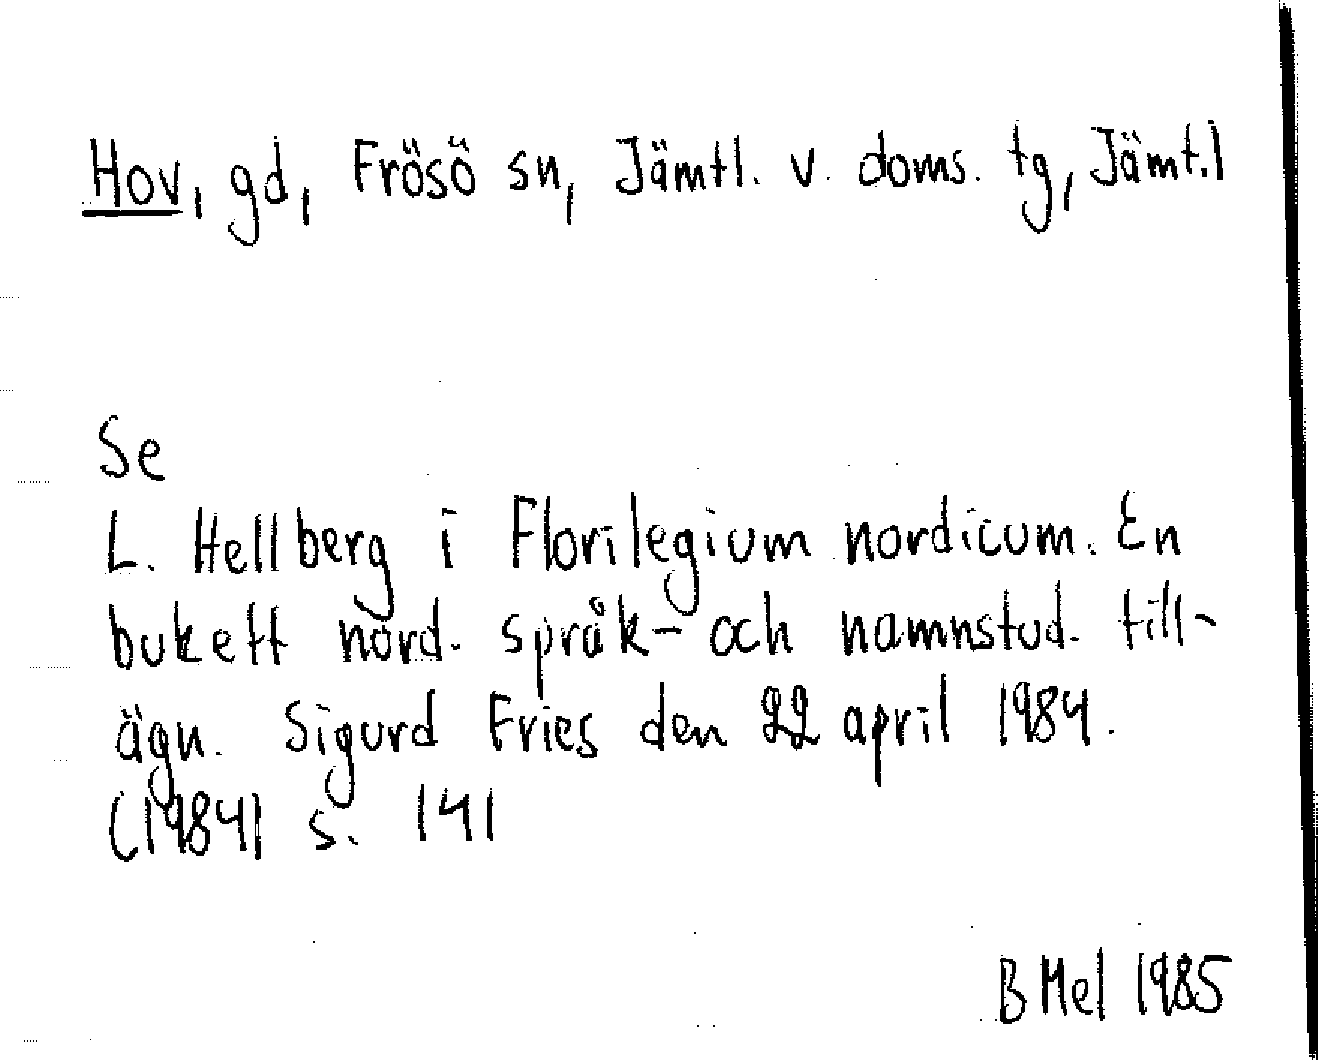 Hov, gd, Frösö sn, Jämtl. v. doms. tg, Jämt.l
Se
L. Hellberg i Florilegium nordicum. En
bukett nord. språk- och namnstud. till-
ägn. Sigurd Fries den 22 april 1984.
(1984) s. 141
B Mel 1985